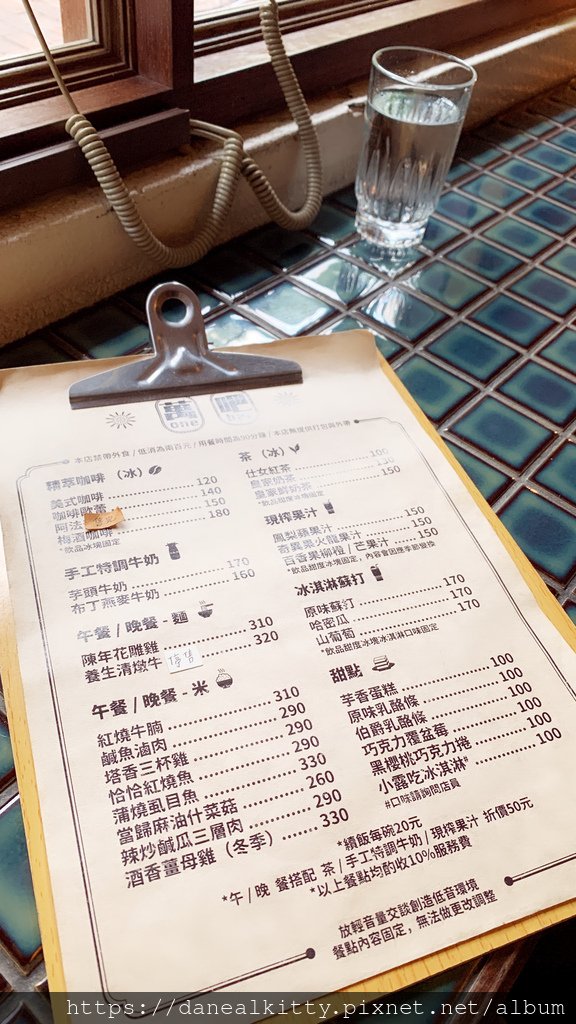 one
本店禁帶外食 / 低消為兩百元 / 用餐時間為90分鐘 / 本店無提供打包與外帶
精萃咖啡 (冰)
美式咖啡 120
咖啡歐蕾 140
阿法 150
梅酒咖啡 180
*飲品冰塊固定
手工特調牛奶
芋頭牛奶 170
布丁燕麥牛奶 160
午餐 / 晚餐 - 麵
陳年花雕雞 310
養生清燉牛 320
停售
午餐 / 晚餐 - 米
紅燒牛腩 310
鹹魚滷肉 290
塔香三杯雞 290
恰恰紅燒魚 290
蒲燒虱目魚 330
當歸麻油什菜菇 260
辣炒鹹瓜三層肉 290
酒香薑母雞 (冬季) 330
茶 (冰)
仕女紅茶 100
皇家奶茶 130
皇家鮮奶茶 150
*飲品甜度冰塊固定
現榨果汁
鳳梨蘋果汁 150
奇異果火龍果汁 150
百香果柳橙 / 芒果汁 150
*飲品甜度冰塊固定, 內容會因應季節變換
冰淇淋蘇打
原味蘇打 170
哈密瓜 170
山葡萄 170
*飲品甜度冰塊冰淇淋口味固定
甜點
芋香蛋糕 100
原味乳酪條 100
伯爵乳酪條 100
巧克力覆盆莓 100
黑櫻桃巧克力捲 100
小露吃冰淇淋# 100
#口味請詢問店員
*續飯每碗20元
*午 / 晚 餐搭配 茶 / 手工特調牛奶 / 現榨果汁 折價50元
*以上餐點均酌收10%服務費
放輕音量交談創造低音環境
餐點內容固定, 無法做更改調整
https://danealkitty.pixnet.net/album